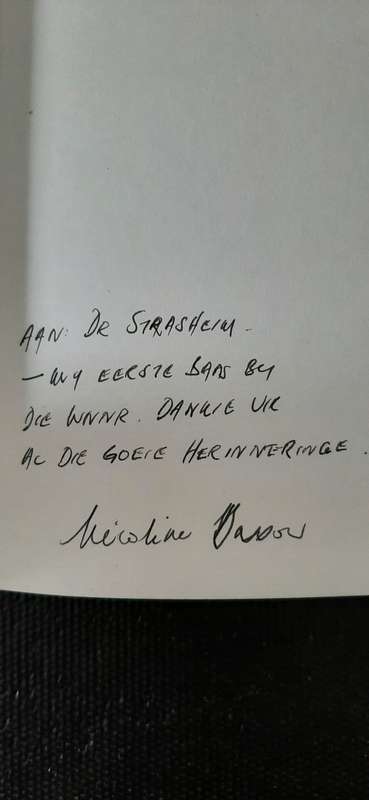 AAN: DR STRASHEIM -
- MY EERSTE BAAS BY
DIE WNNR. DANKIE VIR
AL DIE GOEIE HERINNERINGE.
Nicoline